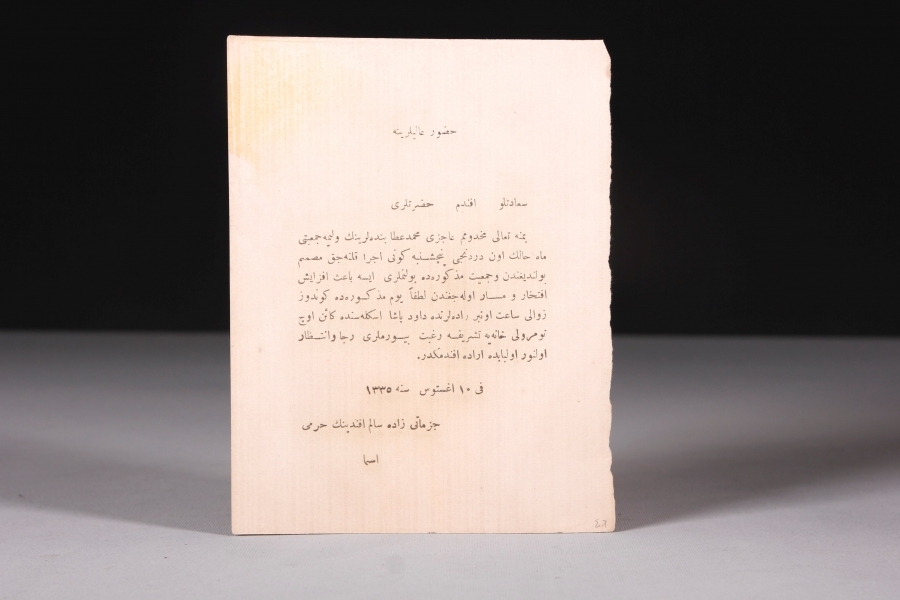 حضور عاليلرينه
سعادتلو افندم حضرتلری
بمنه تعالی مخدومم عاجزی محمدعطا بنده‌لرينك وليمه جمعيتی
ماه حالك اون دردنجی پنچشنبه كونی اجرا قلنه‌جق مصمم
بولنديغندن وجمعيت مذكوره‌ده بولنملری ايسه باعث افزايش
افتخار و مسار اوله‌جغندن لطفاً يوم مذكوره‌ده كوندوز
زوالی ساعت اونبر راده‌لرنده داود پاشا اسكله‌سنده كائن اوچ
نومرولی خانه‌يه تشريفه رغبت بيورملری رجا وانتظار
اولنور اولبابده اراده افندمكدر.
فی ١٠ اغستوس سنه ١٣٣٥
جزماتی زاده سالم افندينك حرمی
اسما